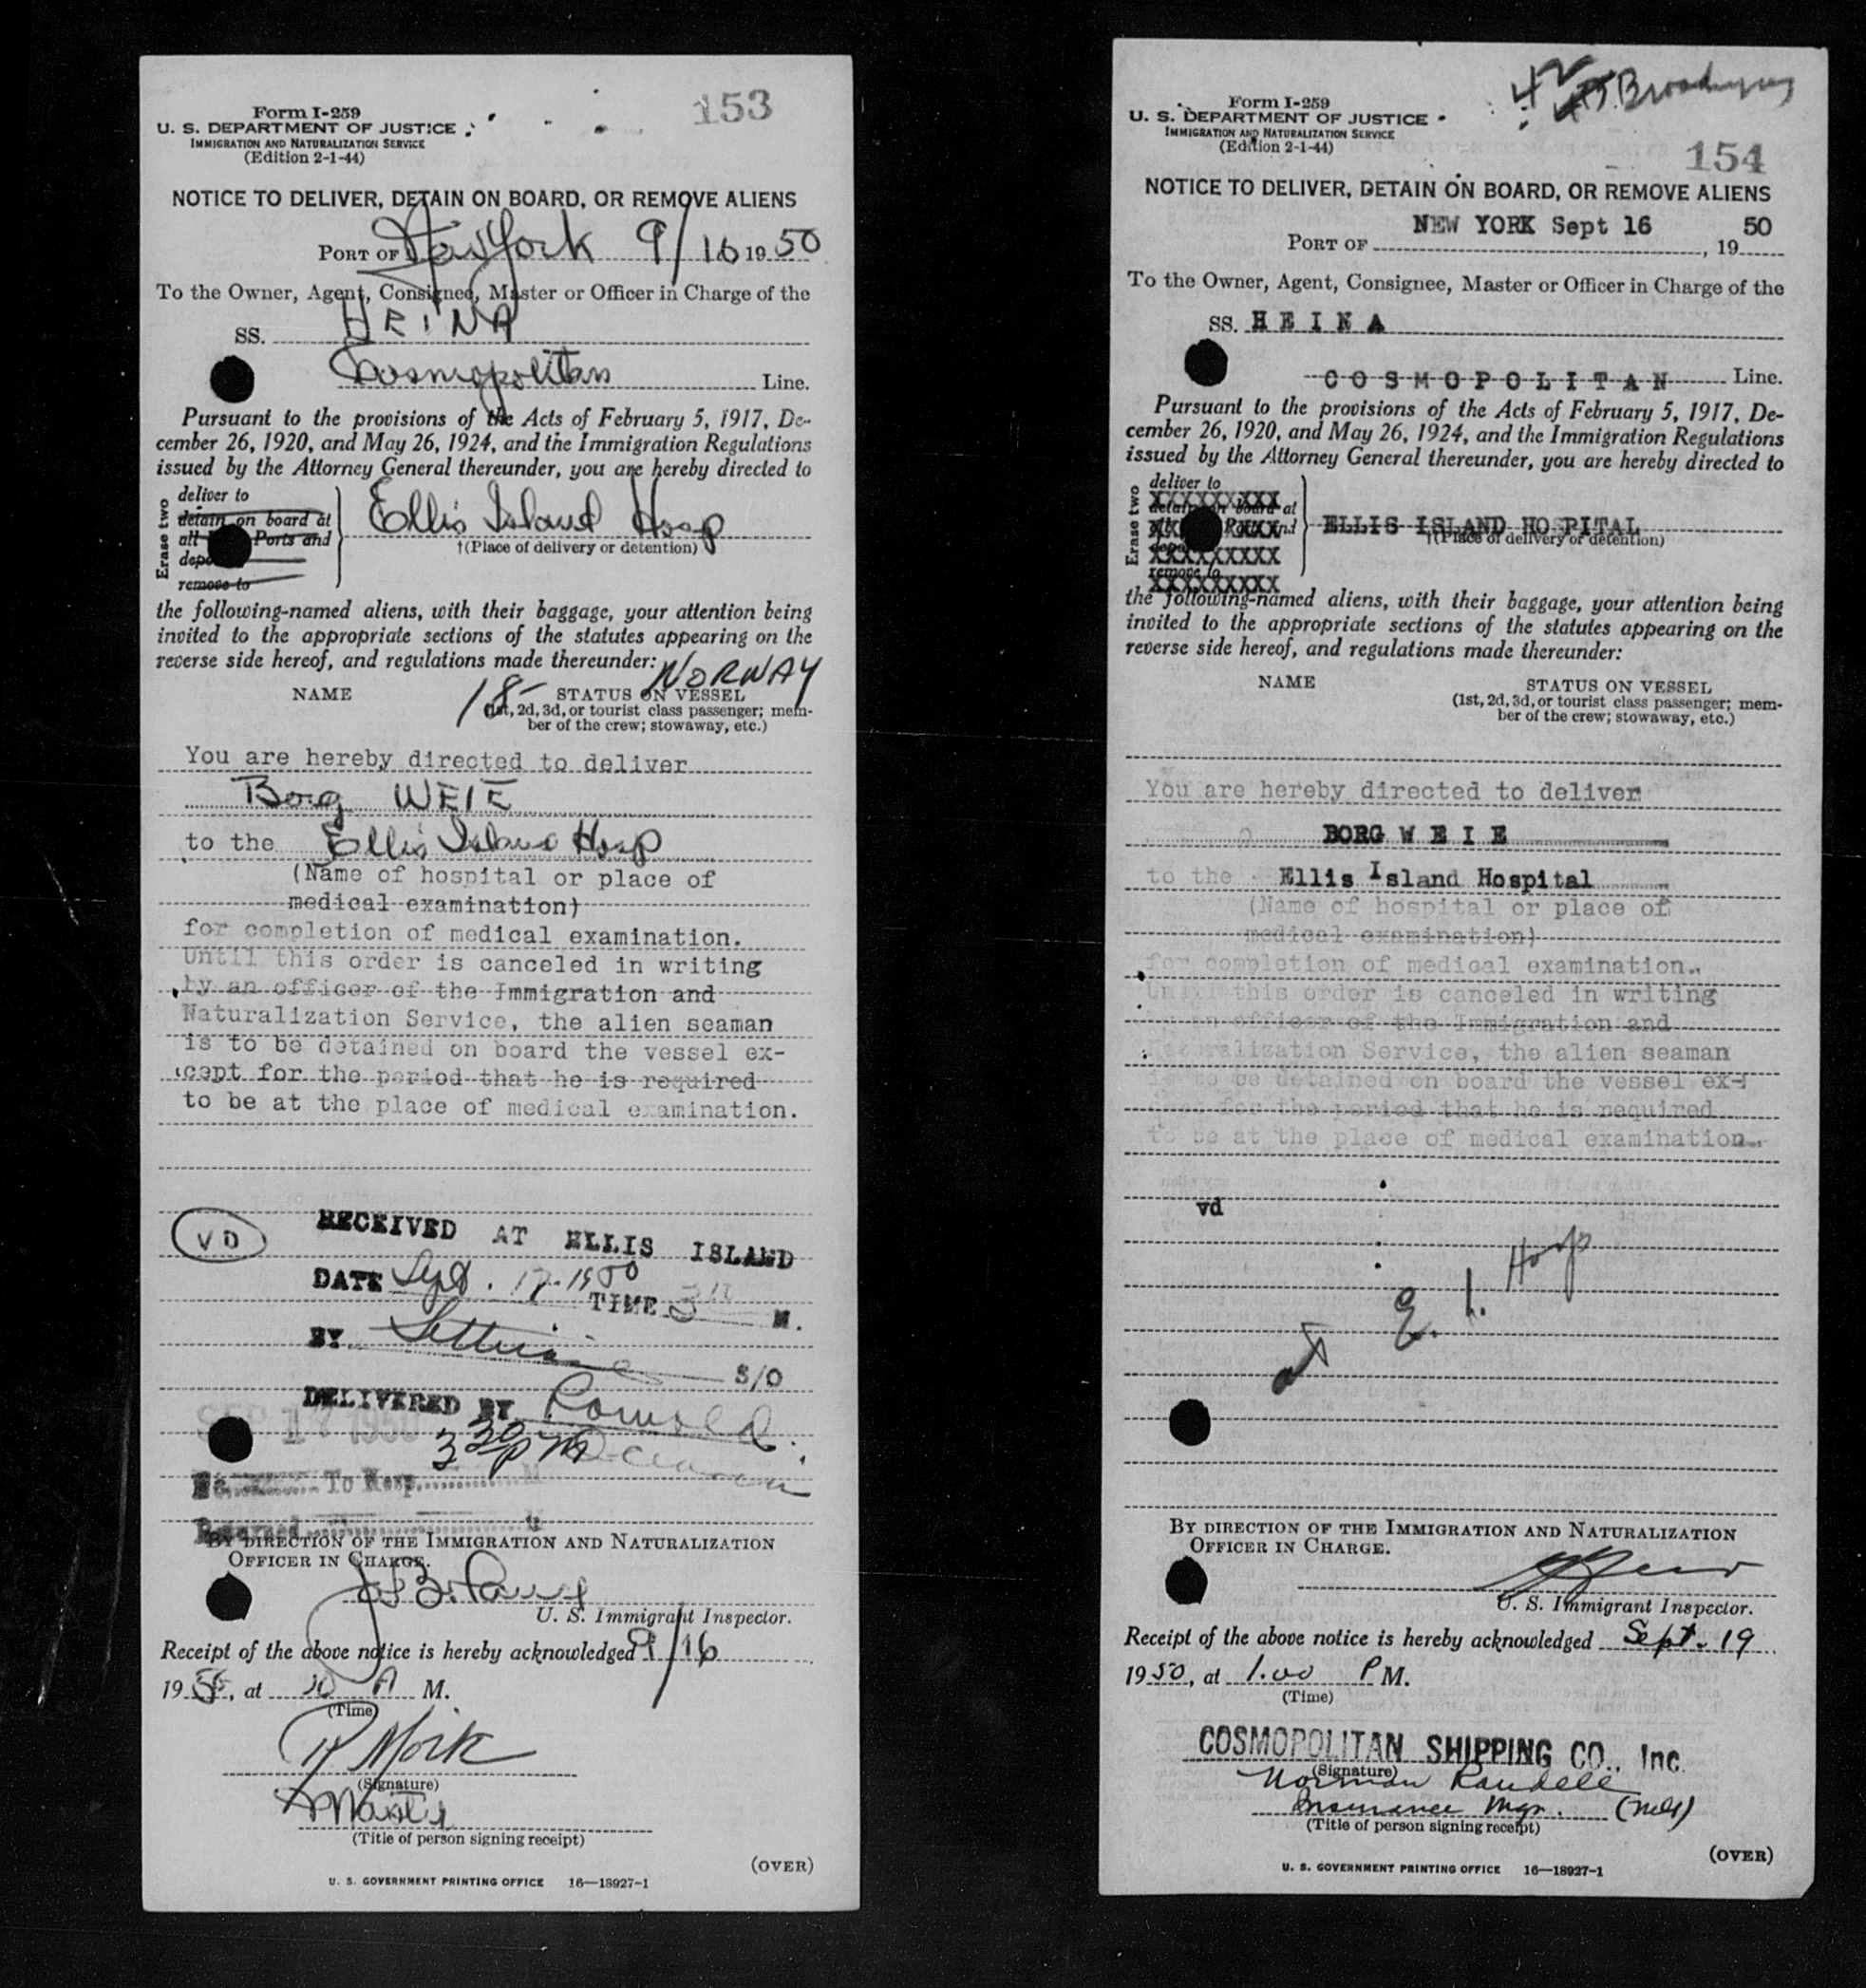 153
Form I-259
U. S. DEPARTMENT OF JUSTICE
IMMIGRATION AND NATURALIZATION SERVICE
(Edition 2-1-44)
NOTICE TO DELIVER, DETAIN ON BOARD, OR REMOVE ALIENS
PORT OF New York 9/16 1950
To the Owner, Agent, Consignee, Master or Officer in Charge of the
SS. HEINA
Cosmopolitan Line.
Pursuant to the provisions of the Acts of February 5, 1917, De-
cember 26, 1920, and May 26, 1924, and the Immigration Regulations
issued by the Attorney General thereunder, you are hereby directed to
Erase two
deliver to
detain on board at
all Ports and
remove to
Ellis Island Hosp
†(Place of delivery or detention)
the following-named aliens, with their baggage, your attention being
invited to the appropriate sections of the statutes appearing on the
reverse side hereof, and regulations made thereunder:
NORWAY
NAME 18- STATUS ON VESSEL
(1st, 2d, 3d, or tourist class passenger; mem-
ber of the crew; stowaway, etc.)
You are hereby directed to deliver
Borg WEIE
to the Ellis Island Hosp
(Name of hospital or place of
medical examination)
for completion of medical examination.
Until this order is canceled in writing
by an officer of the Immigration and
Naturalization Service, the alien seaman
is to be detained on board the vessel ex-
cept for the period that he is required
to be at the place of medical examination.
VD
RECEIVED AT ELLIS ISLAND
DATE Sept. 17-1950 TIME 3 M.
BY S/O
DELIVERED BY
SEP 17 1950
3 30 PM
To Hosp. M
Returned M
BY DIRECTION OF THE IMMIGRATION AND NATURALIZATION
OFFICER IN CHARGE.
U. S. Immigrant Inspector.
Receipt of the above notice is hereby acknowledged 9/16
1950, at 10 A M.
(Time)
(Signature)
Master
(Title of person signing receipt)
(OVER)
U. S. GOVERNMENT PRINTING OFFICE 16—18927-1
Broadway
154
Form I-259
U. S. DEPARTMENT OF JUSTICE
IMMIGRATION AND NATURALIZATION SERVICE
(Edition 2-1-44)
NOTICE TO DELIVER, DETAIN ON BOARD, OR REMOVE ALIENS
PORT OF NEW YORK Sept 16, 1950
To the Owner, Agent, Consignee, Master or Officer in Charge of the
SS. HEINA
COSMOPOLITAN Line.
Pursuant to the provisions of the Acts of February 5, 1917, De-
cember 26, 1920, and May 26, 1924, and the Immigration Regulations
issued by the Attorney General thereunder, you are hereby directed to
Erase two
deliver to
XXXXXXXXX
detain on board at
Ports and
XXXXXXXXX
remove to
XXXXXXXXX
ELLIS ISLAND HOSPITAL
†(Place of delivery or detention)
the following-named aliens, with their baggage, your attention being
invited to the appropriate sections of the statutes appearing on the
reverse side hereof, and regulations made thereunder:
NAME STATUS ON VESSEL
(1st, 2d, 3d, or tourist class passenger; mem-
ber of the crew; stowaway, etc.)
You are hereby directed to deliver
BORG WEIE
to the Ellis Island Hospital
(Name of hospital or place of
medical examination)
for completion of medical examination.
Until this order is canceled in writing
by an officer of the Immigration and
Naturalization Service, the alien seaman
is to be detained on board the vessel ex-
cept for the period that he is required
to be at the place of medical examination.
vd
at E. I. Hosp
BY DIRECTION OF THE IMMIGRATION AND NATURALIZATION
OFFICER IN CHARGE.
U. S. Immigrant Inspector.
Receipt of the above notice is hereby acknowledged Sept. 19
1950, at 1.00 P M.
(Time)
COSMOPOLITAN SHIPPING CO., Inc.
(Signature)
Norman Randell
Insurance Mgr.
(Title of person signing receipt)
(OVER)
U. S. GOVERNMENT PRINTING OFFICE 16—18927-1